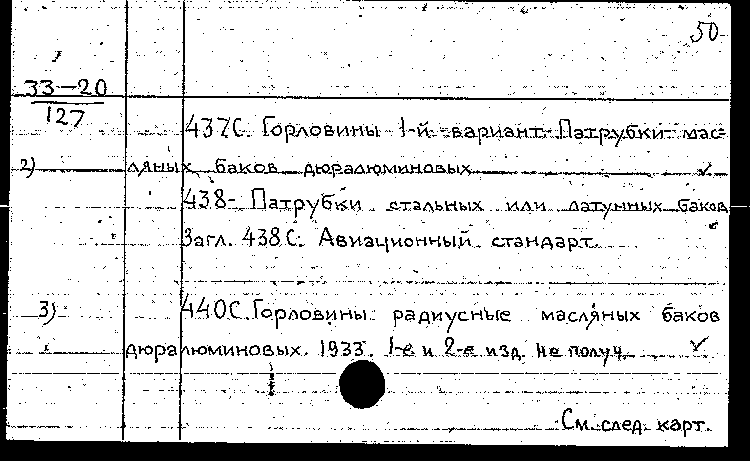 50
33-20
127
437С. Горловины 1-й вариант. Патрубки мас-
2) ляных баков дюралюминовых
438- Патрубки стальных или латунных баков
Загл. 438С: Авиационный стандарт.
3) 440С. Горловины радиусные масляных баков
дюралюминовых. 1933. 1-е и 2-е изд. не получ.
См. след. карт.